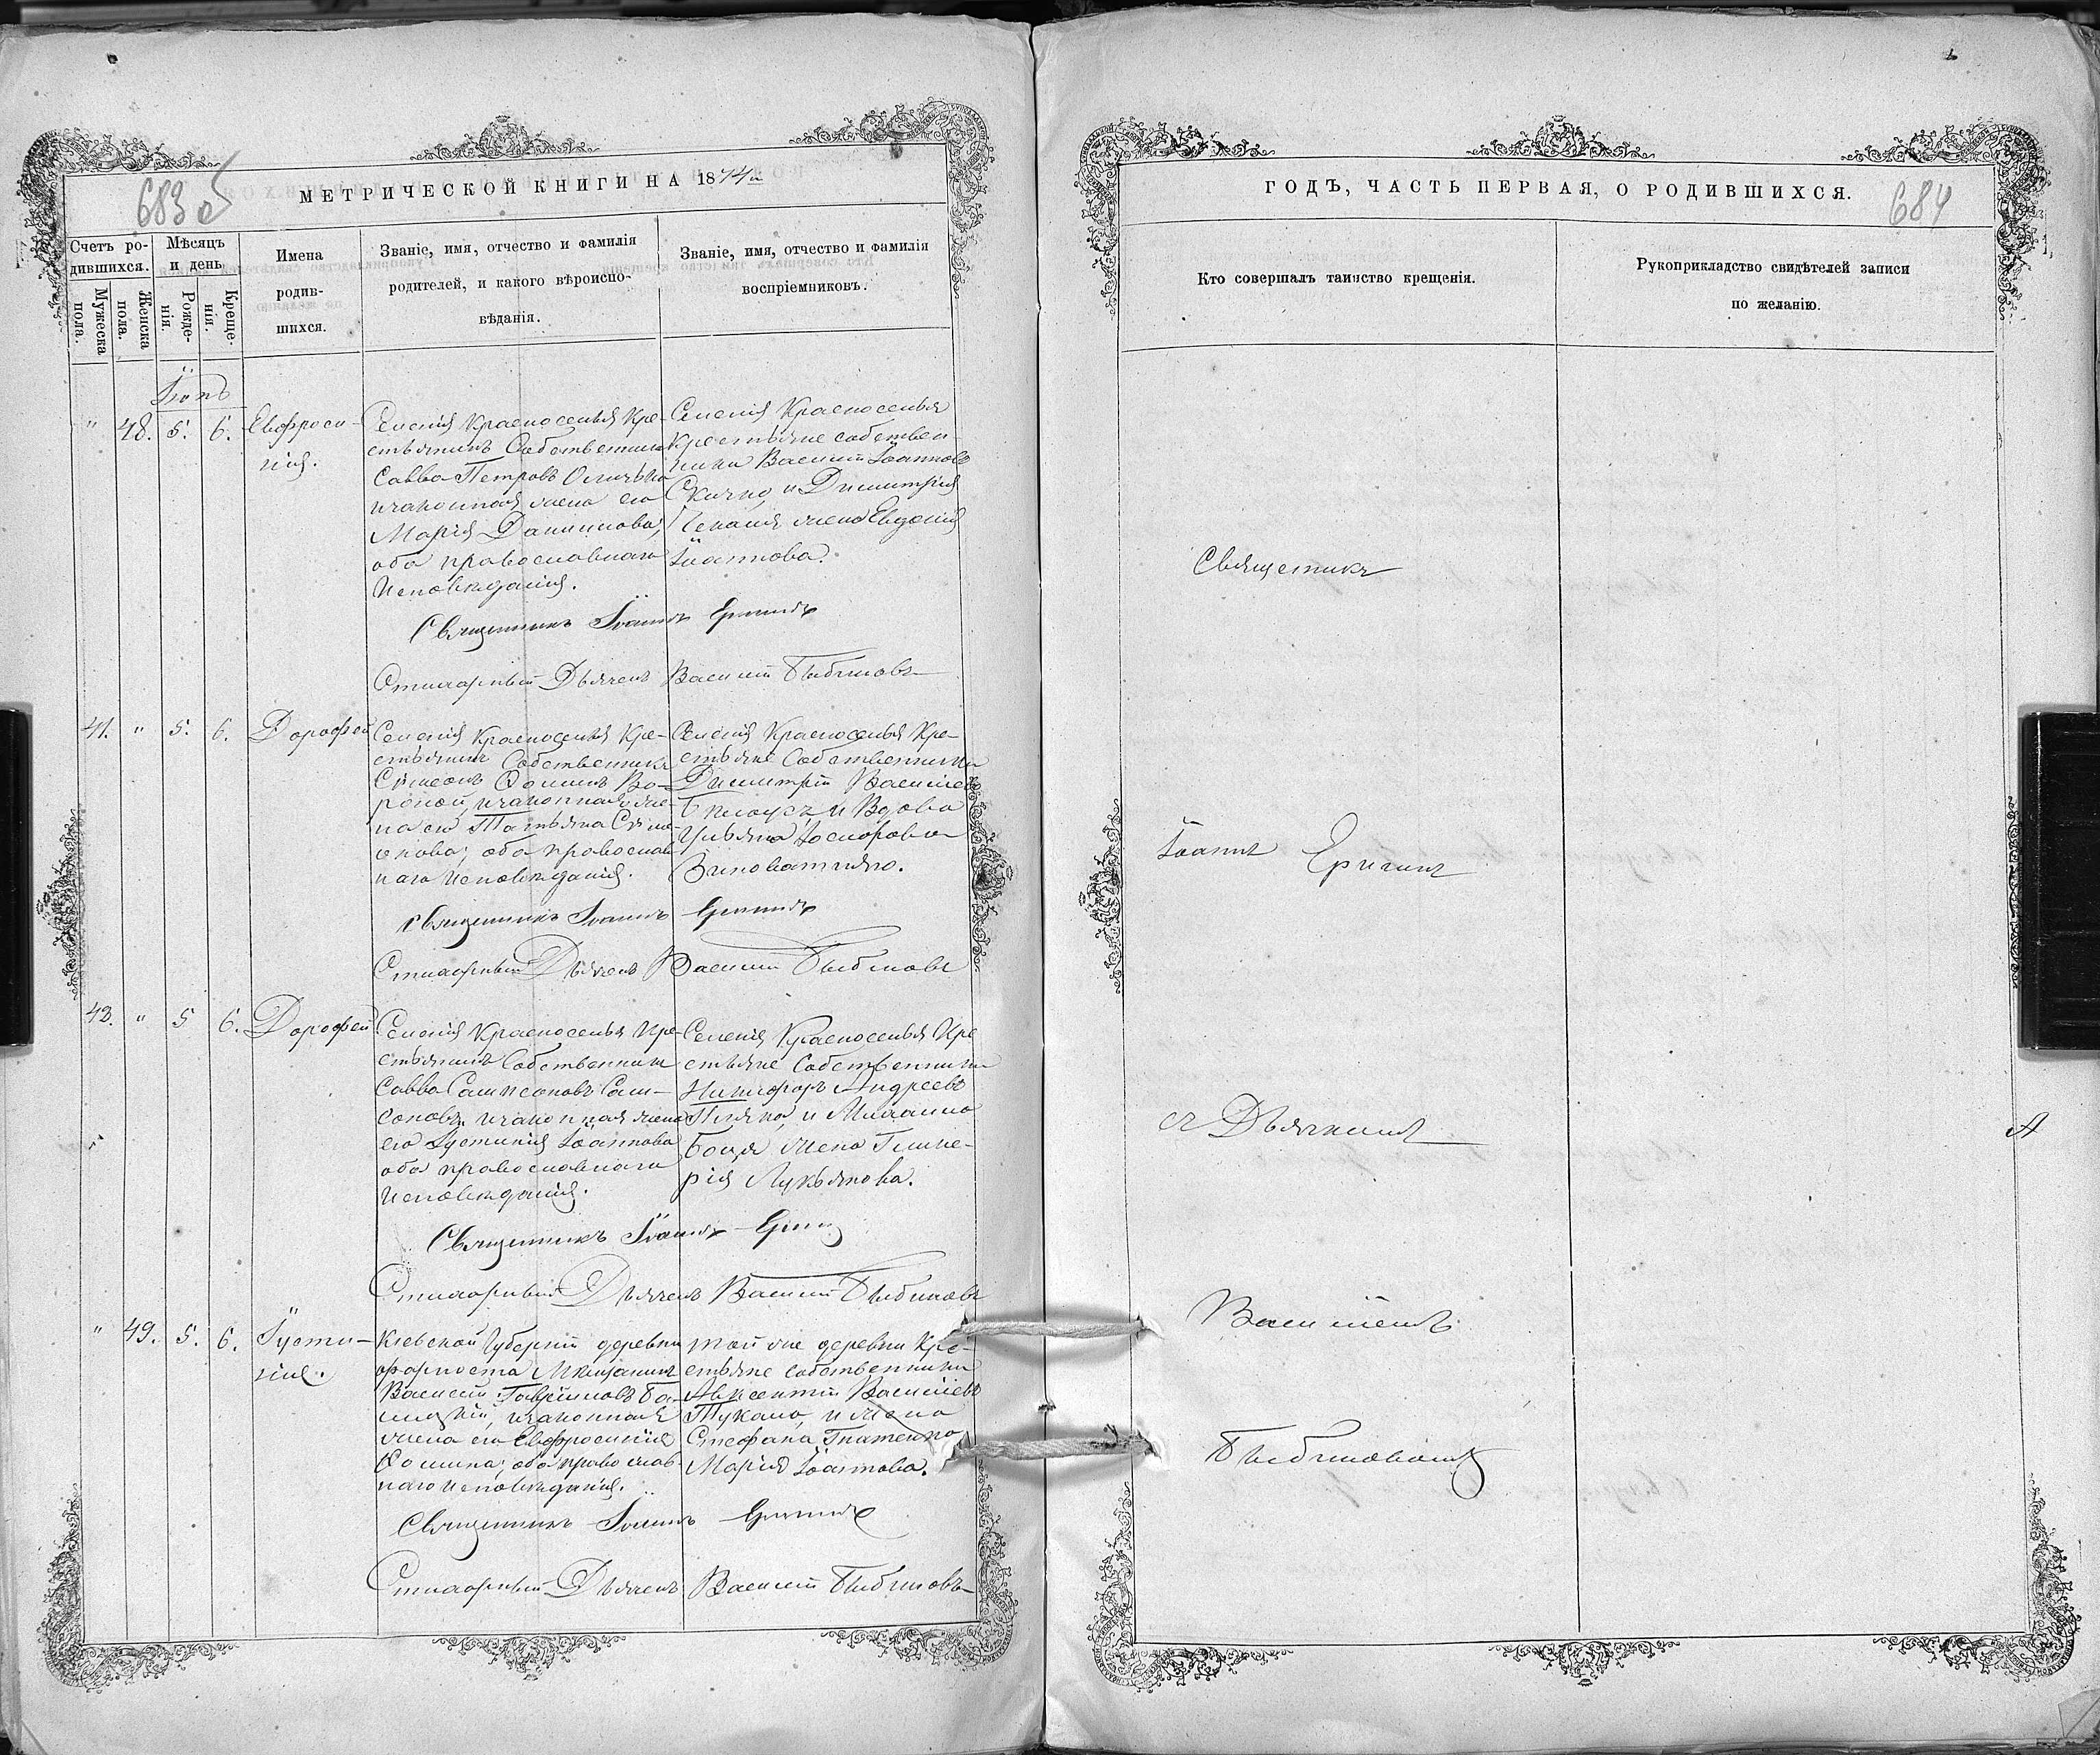 683 об
МЕТРИЧЕСКОЙ КНИГИ НА 1874й
Счетъ ро-
дившихся.
Мѣсяцъ
и день
Мужеска
пола.
Женска
пола.
Рожде-
нія.
Креще-
нія.
Имена
родив-
шихся.
Званіе, имя, отчество и фамилія
родителей, и какого вѣроиспо-
вѣданія.
Званіе, имя, отчество и фамилія
воспріемниковъ.
" 48. 5. 6.
Евфроси-
нія.
Селенія Красноселья Кре-
стьянинъ Собственникъ
Савва Петровъ
и законная жена его
Марія Даниилова,
оба православнаго
Исповѣданія.
Селенія Красноселья
Крестьяне собствен-
ники Василій Іоанновъ
и Димитрія
жена Евдокія
Іоаннова.
Священникъ Іоаннъ
Стихарный Дьячекъ Василій
41. " 5. 6.
Дорофей
Селенія Красноселья Кре-
стьянинъ Собственникъ
Сѵмеонъ Ѳоминъ Во-
роной, и законная же-
на его Татьяна Сѵме-
онова, оба православ-
наго Исповѣданія.
Селенія Красноселья Кре-
стьяне Собственники
Димитрій Василіевъ
Билоусъ, и Вдова
Ульяна
Священникъ Іоаннъ
Стихарный Дьячекъ Василій
42. " 5 6.
Дорофей
Селенія Красноселья Кре-
стьянинъ Собственникъ
Савва Сампсоновъ Сам-
соновъ и законная жена
его Іустинія Іоаннова
оба православнаго
Исповѣданія.
Селенія Красноселья Кре
стьяне Собственники
Никифоръ Андреевъ
и Михаила
жена Глике-
рія Лукьянова.
Священникъ Іоаннъ
Стихарный Дьячекъ Василій
" 49. 5. 6.
Іусти-
нія.
Кіевской Губерніи деревни
форпоста Мѣщанинъ
Василій Гавріиловъ
и законная
жена его Евфросинія
Ѳомина, оба православ-
наго Исповѣданія.
той же деревни Кре-
стьяне собственники
Авксентій Василіевъ
и жена
Стефана Гнатенка
Марія Іоаннова.
Священникъ Іоаннъ
Стихарный Дьячекъ Василій
684
ГОДЪ, ЧАСТЬ ПЕРВАЯ, О РОДИВШИХСЯ.
Кто совершалъ таинство крещенія.
Рукоприкладство свидѣтелей записи
по желанію.
Священникъ
Іоаннъ
съ Дьячкомъ
Василіемъ